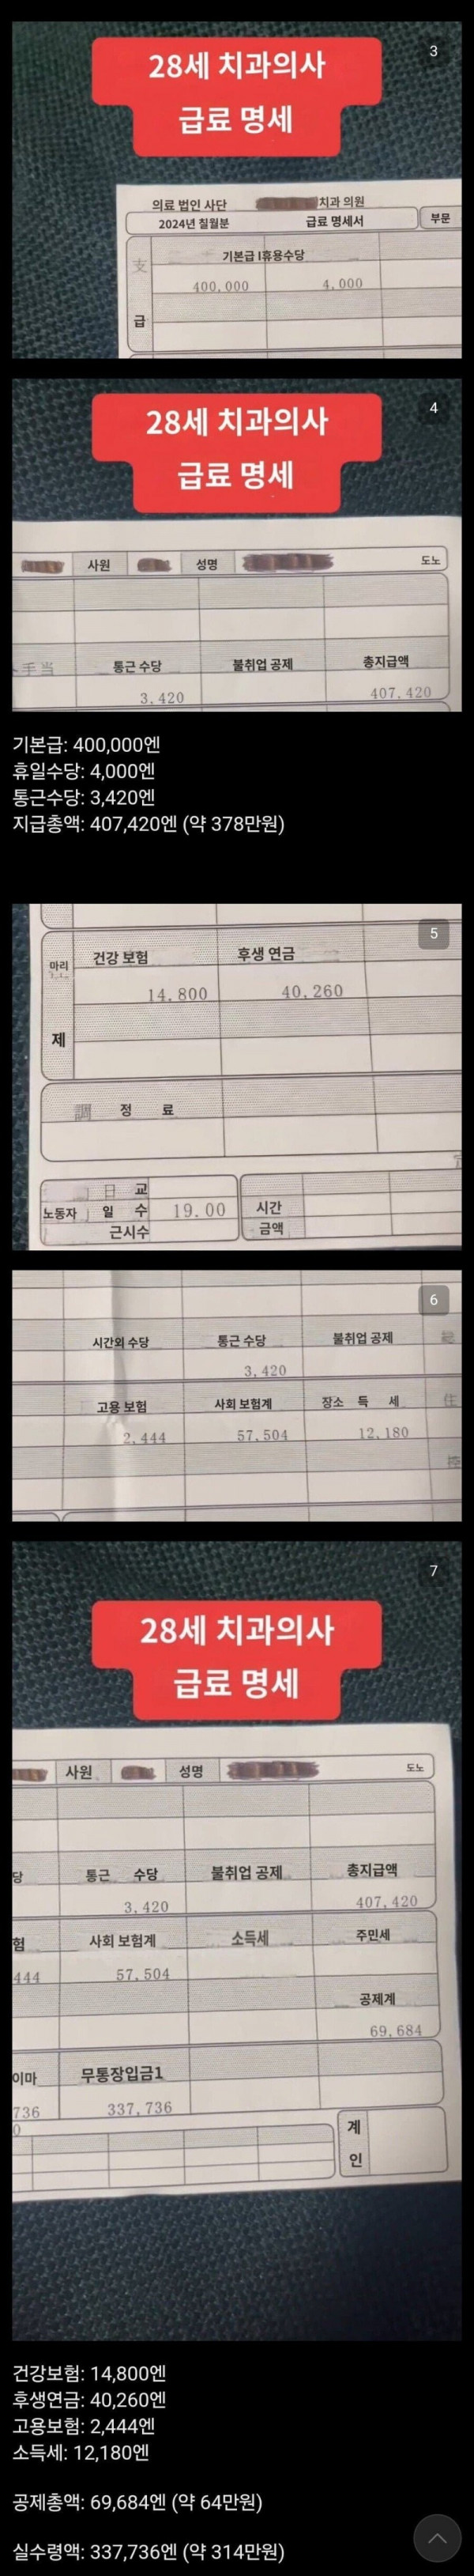 3
28세 치과의사
급료 명세
의료 법인 사단 치과 의원
2024년 칠월분 급료 명세서 부문
支 기본급 I휴용수당
400,000 4,000
급
4
28세 치과의사
급료 명세
사원 성명 도노
手当 통근 수당 불취업 공제 총지급액
3,420 407,420
기본급: 400,000엔
휴일수당: 4,000엔
통근수당: 3,420엔
지급총액: 407,420엔 (약 378만원)
5
마리 건강 보험 후생 연금
14,800 40,260
제
調 정 료
日 교
노동자 일 수 19.00 시간
근시수 금액
6
시간외 수당 통근 수당 불취업 공제 総
3,420
고용 보험 사회 보험계 장소 득 세 住
2,444 57,504 12,180
控
7
28세 치과의사
급료 명세
사원 성명 도노
당 통근 수당 불취업 공제 총지급액
3,420 407,420
험 사회 보험계 소득세 주민세
444 57,504
공제계
69,684
이마 무통장입금1
736 337,736
0
계
인
건강보험: 14,800엔
후생연금: 40,260엔
고용보험: 2,444엔
소득세: 12,180엔
공제총액: 69,684엔 (약 64만원)
실수령액: 337,736엔 (약 314만원)